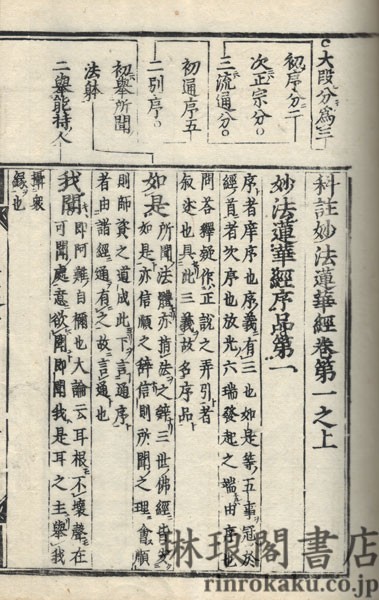 大段分爲三
初序分二
次正宗分
三流通分
初通序五
二別序
初擧所聞
法躰
二擧能持人
科註妙法蓮華經卷第一之上
妙法蓮華經序品第一
序者庠序也序義有三也如是等五事冠於
經首者次序也放光六瑞發起之端由序也
問答釋疑作正說之弄引者
叙述也具此三義故名序品
如是 所聞法躰亦指法之辞三世佛經皆安
如是亦信順之辞信則所聞之理會順
則師資之道成此下言通序
者由諸經通有之故言通也
我聞 即阿難自稱也大論云耳根不壞聲在
可聞處意欲聞即聞我是耳之主擧我
攝衆
録也
林琅閣書店
rinrokaku.co.jp